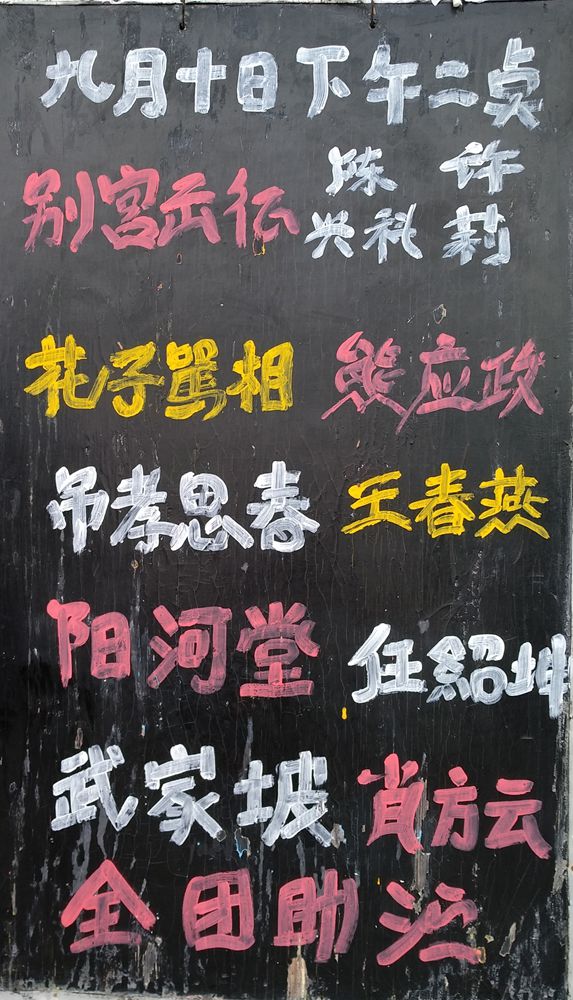 九月十日下午二点
别宫出征 陈兴礼 许莉
花子骂相 熊应政
吊孝思春 王春燕
阳河堂 任紹坤
武家坡 肖方云
全团助演